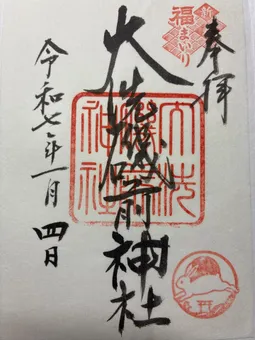 奉拝
新春
福
まいり
大洗磯前神社
大洗
磯前
神社
令和七年一月四日